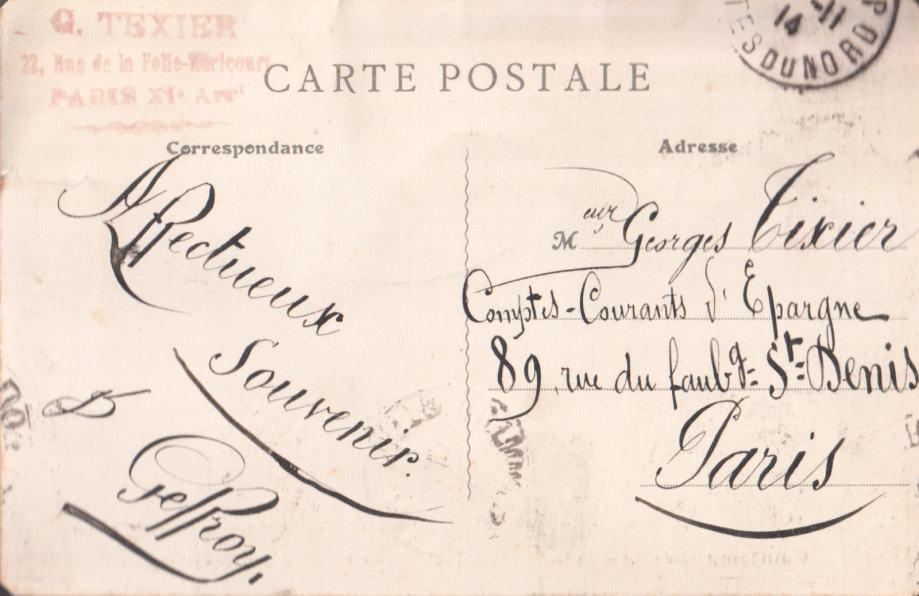 G. TEXIER
22, Rue de la Folie-Méricourt
PARIS XIe Arrt
CARTE POSTALE
14 -11
TES DU NORD
Correspondance
Affectueux
Souvenir.
Geffroy.
Adresse
Meur Georges Tixier
Comptes-Courants d'Epargne
89, rue du faubg= St=Denis
Paris